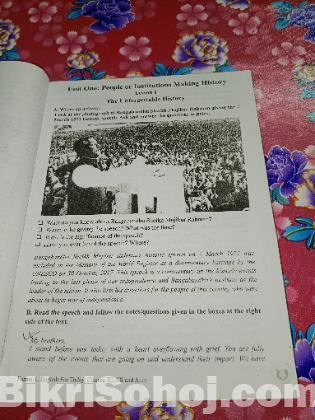 Unit One: People or Institutions Making History
Lesson 1
The Unforgettable History
A. Warm up activity
Look at the photograph of Bangabandhu Sheikh Mujibur Rahman giving the 7
March 1971
What do you know about Bangabandhu Sheikh Mujibur Rahman?
Where is he giving the speech? What was the time?
What is the significance of the speech?
Have you ever heard the speech? Where?
Bangabandhu Sheikh Mujibur Rahman's historic speech on 7 March 1971 was
included in the Memory of the World Register as a documentary heritage by the
UNESCO on 30 October 2017. This speech is a commentary on the historic events
leading to the last phase of our independence and Bangabandhu's
leader of the nation. It was also his direction for the people of this country who were
about to begin war of independence.
B. Read the speech and follow the notes/questions given in the boxes at the right
side of the text.
My brothers,
I stand before you today with a heart overflowing with grief. You are fully
aware of the events that are going on and understand their import. We have
English For Today Classes
BikriSohoj.com